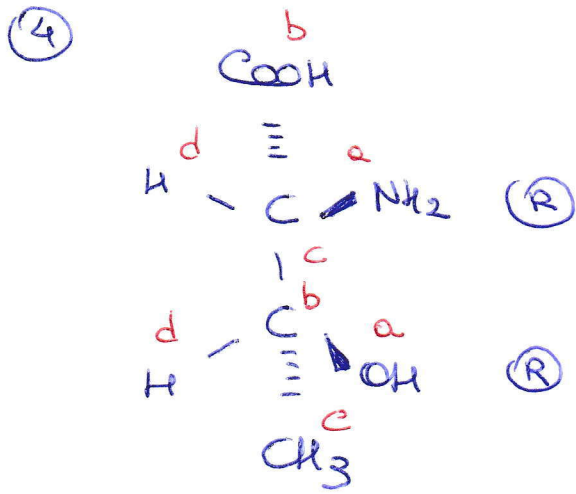 4
b
COOH
d a
H C NH2 R
c
b
d C a
H OH R
c
CH3